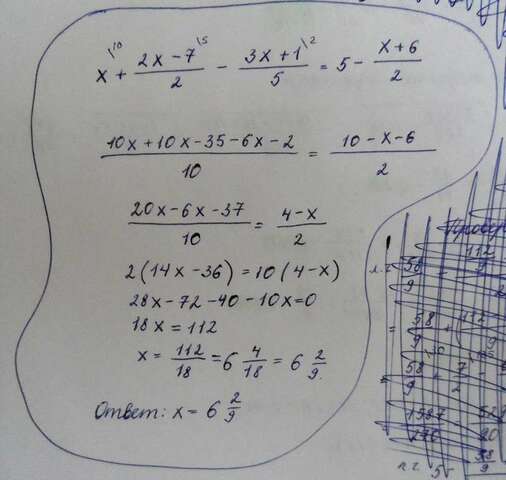 x\10 + (2x-7)\5/2 - (3x+1)\2/5 = 5 - (x+6)/2
(10x+10x-35-6x-2)/10 = (10-x-6)/2
(20x-6x-37)/10 = (4-x)/2
2(14x-36)=10(4-x)
28x-72-40-10x=0
18x=112
x=112/18=6 4/18=6 2/9.
Ответ: x=6 2/9